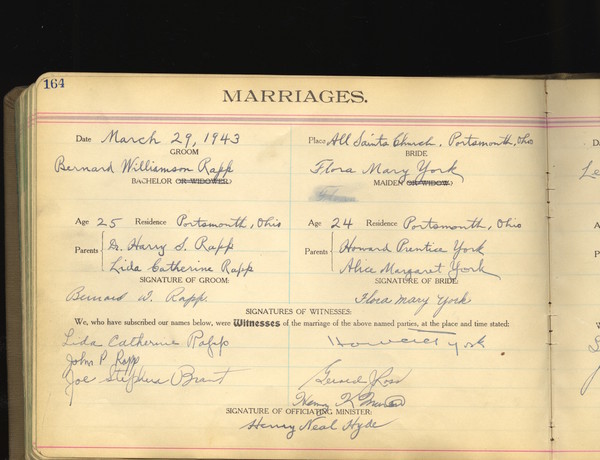 164
MARRIAGES.
Date March 29, 1943 Place All Saints Church, Portsmouth, Ohio
GROOM BRIDE
Bernard Williamson Rapp Flora Mary York
BACHELOR OR WIDOWER) MAIDEN OR WIDOW)
Age 25 Residence Portsmouth, Ohio Age 24 Residence Portsmouth, Ohio
G. Harry S. Rapp Howard Prentice York
Parents Parents
Lida Catherine Rapp Alice Margaret York
SIGNATURE OF GROOM: SIGNATURE OF BRIDE:
Bernard W. Rapp Flora Mary York
SIGNATURES OF WITNESSES:
We, who have subscribed our names below, were Witnesses of the marriage of the above named parties, at the place and time stated:
Lida Catherine Rapp Howard York
John P Rapp
Joe Stephen Brant
Henry K
SIGNATURE OF OFFICIATING MINISTER:
Henry Neal Hyde